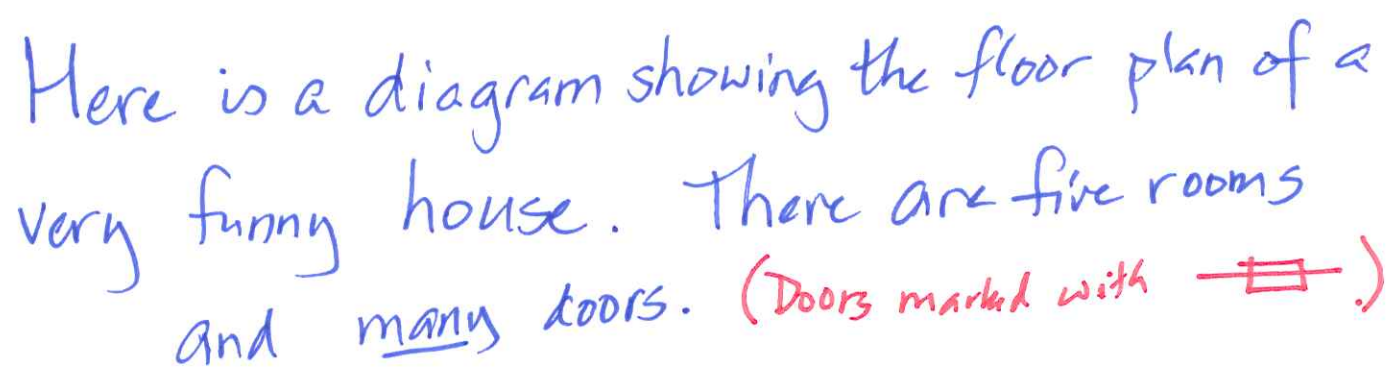 Here is a diagram showing the floor plan of a
very funny house. There are five rooms
and many doors. (Doors marked with .)